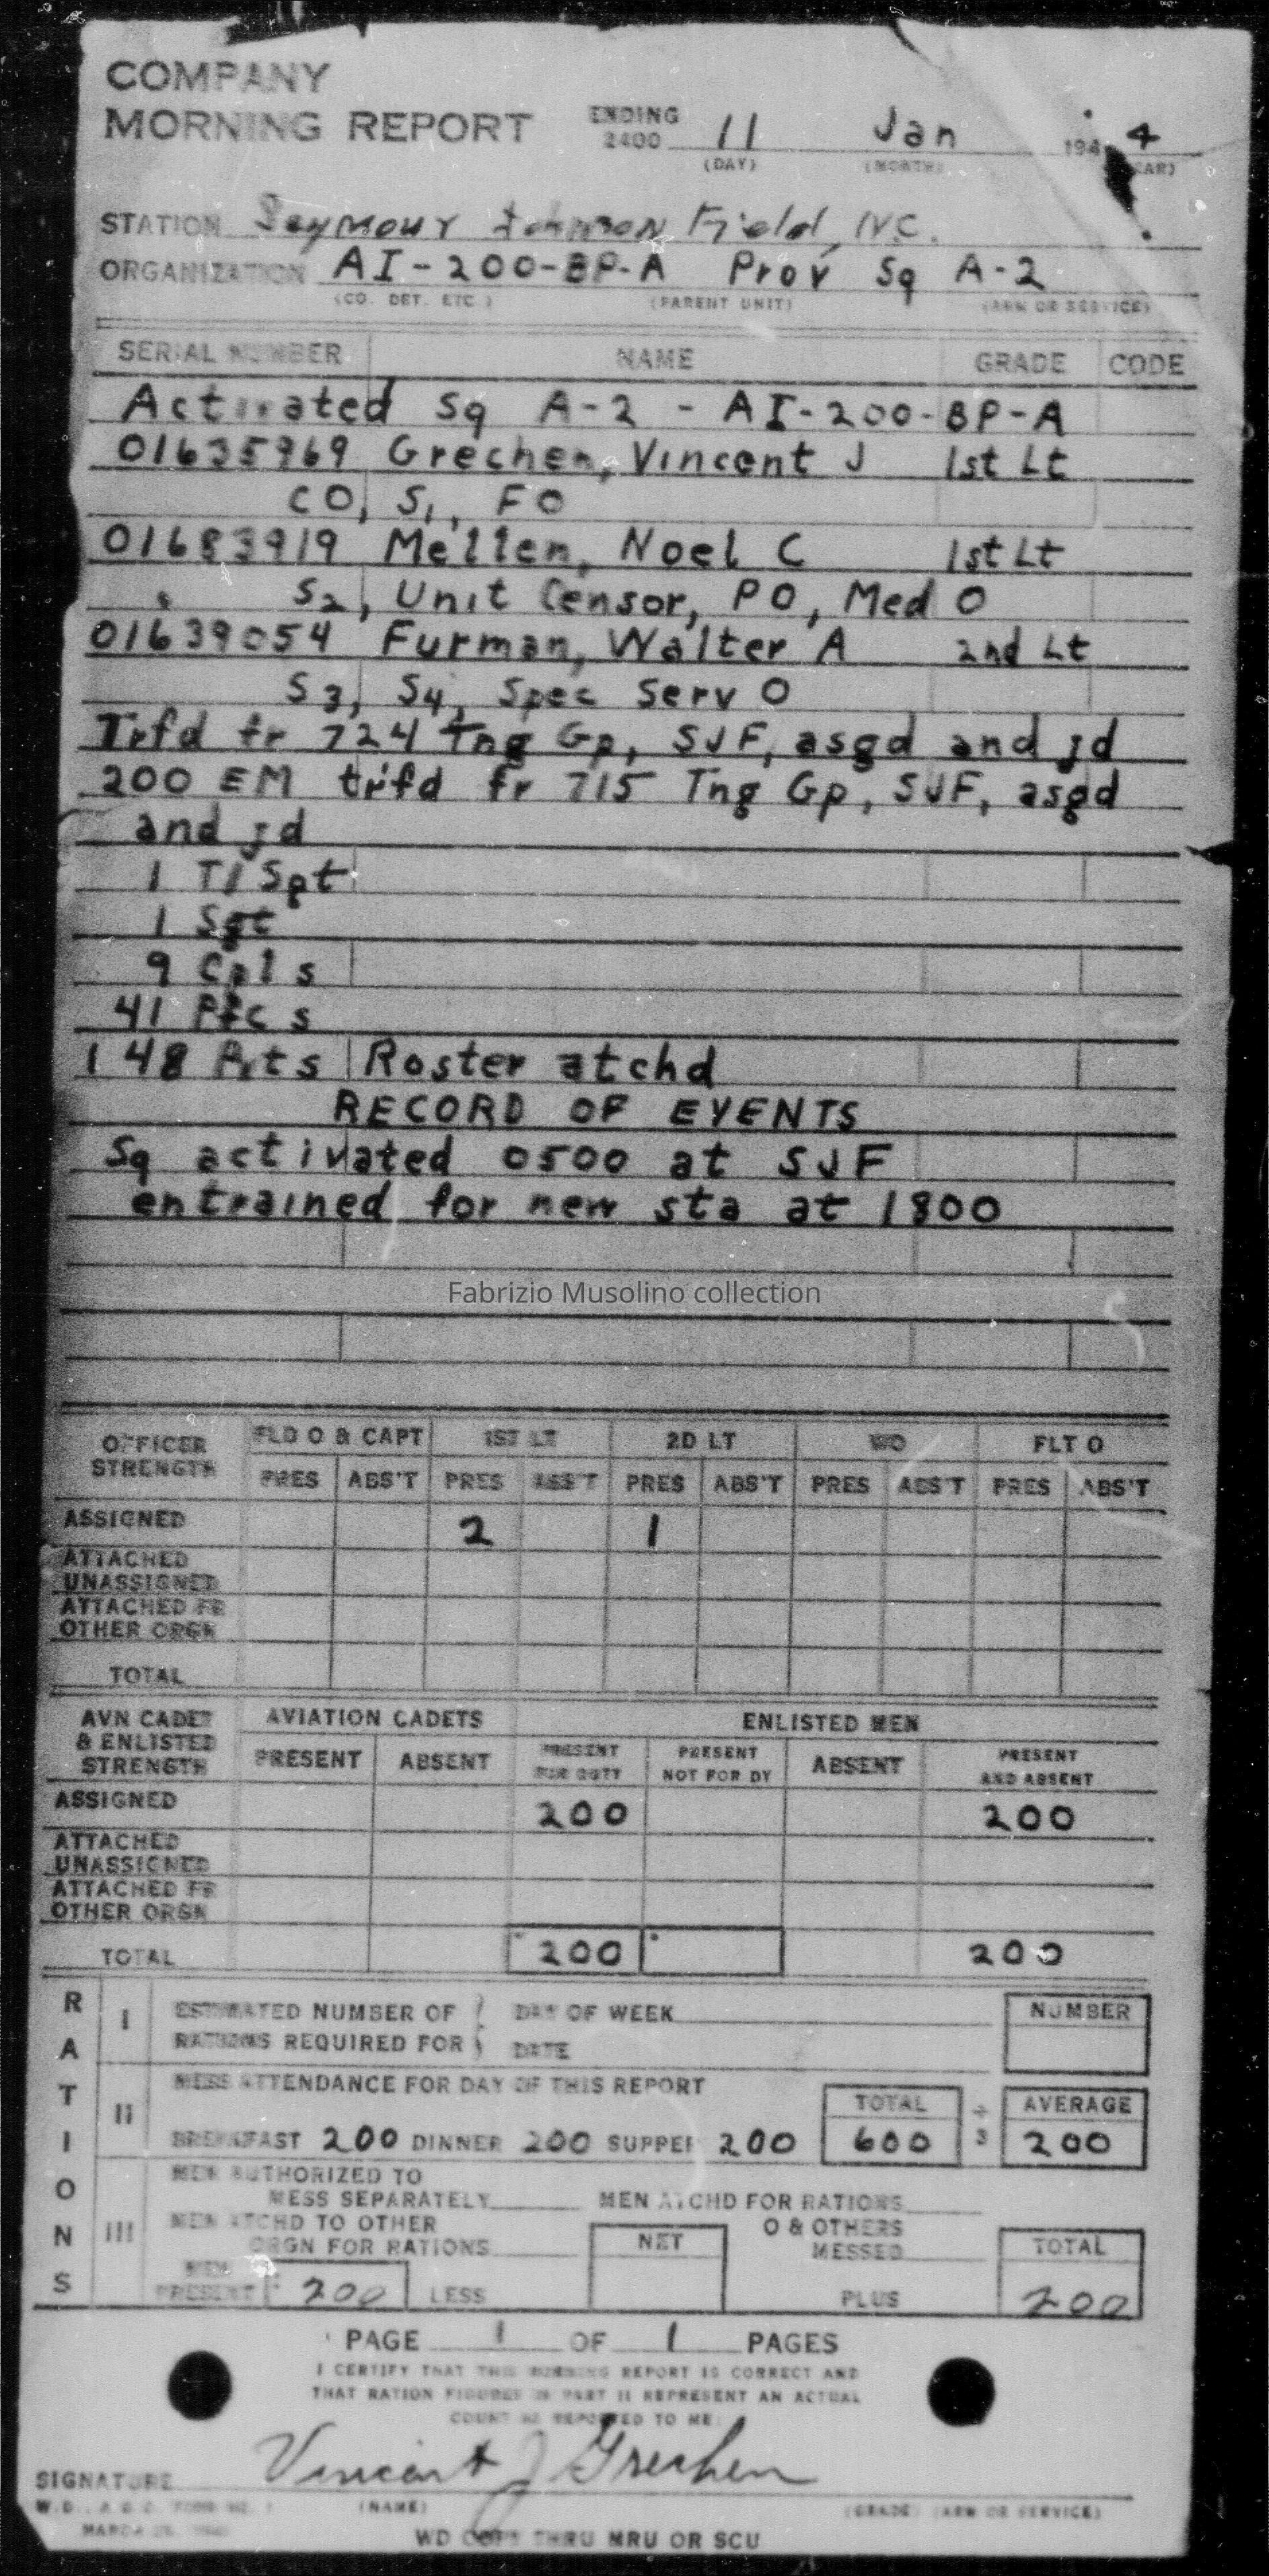 COMPANY
MORNING REPORT ENDING 2400 11 Jan 194 4
(DAY) (MONTH) (YEAR)
STATION Seymour Johnson Field, N.C.
ORGANIZATION AI-200-BP-A Prov Sq A-2
(CO. DET. ETC.) (PARENT UNIT) (ARM OR SERVICE)
SERIAL NUMBER NAME GRADE CODE
Activated Sq A-2 - AI-200-BP-A
01635969 Grechen, Vincent J 1st Lt
CO, S1, FO
01683919 Mellen, Noel C 1st Lt
S2, Unit Censor, PO, Med O
01639054 Furman, Walter A 2nd Lt
S3, S4, Spec Serv O
Trfd fr 724 Tng Gp, SJF, asgd and jd
200 EM trfd fr 715 Tng Gp, SJF, asgd
and jd
1 T/Sgt
1 Sgt
9 Cpls
41 Pfcs
148 Pvts Roster atchd
RECORD OF EVENTS
Sq activated 0500 at SJF
entrained for new sta at 1800
Fabrizio Musolino collection
OFFICER STRENGTH FLD O & CAPT 1ST LT 2D LT WO FLT O
PRES ABS'T PRES ABS'T PRES ABS'T PRES ABS'T PRES ABS'T
ASSIGNED 2 1
ATTACHED
UNASSIGNED
ATTACHED FR
OTHER ORGN
TOTAL
AVN CADET
& ENLISTED
STRENGTH
AVIATION CADETS ENLISTED MEN
PRESENT ABSENT PRESENT FOR DUTY PRESENT NOT FOR DY ABSENT PRESENT AND ABSENT
ASSIGNED 200 200
ATTACHED
UNASSIGNED
ATTACHED FR
OTHER ORGN
TOTAL 200 200
RATIONS
I ESTIMATED NUMBER OF DAY OF WEEK NUMBER
RATIONS REQUIRED FOR DATE
II MESS ATTENDANCE FOR DAY OF THIS REPORT TOTAL ÷ AVERAGE
BREAKFAST 200 DINNER 200 SUPPER 200 600 3 200
III MEN AUTHORIZED TO
MESS SEPARATELY MEN ATCHD FOR RATIONS
MEN ATCHD TO OTHER O & OTHERS
ORGN FOR RATIONS NET MESSED TOTAL
MEN
PRESENT 200 LESS PLUS 200
PAGE 1 OF 1 PAGES
I CERTIFY THAT THIS MORNING REPORT IS CORRECT AND
THAT RATION FIGURES IN PART II REPRESENT AN ACTUAL
COUNT AS REPORTED TO ME:
SIGNATURE Vincent J Grechen
W.D., A.G.O. FORM NO. 1 (NAME) (GRADE) (ARM OR SERVICE)
MARCH
WD COPY THRU MRU OR SCU